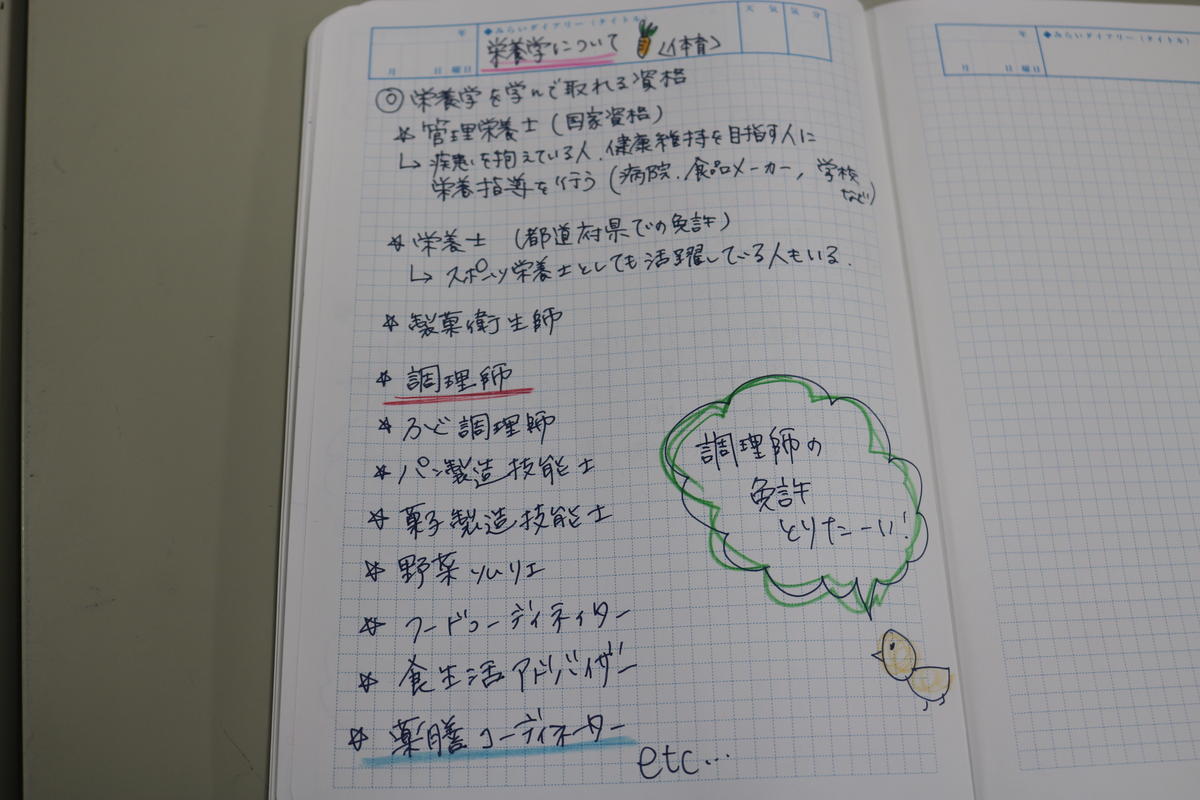 年
月 日 曜日
◆みらいダイアリー(タイトル)
天気 気分
栄養学について <体育>
◎ 栄養学を学んで取れる資格
☆ 管理栄養士(国家資格)
↳ 疾患を抱えている人、健康維持を目指す人に
栄養指導を行う(病院、食品メーカー、学校
など)
☆ 栄養士 (都道府県での免許)
↳ スポーツ栄養士としても活躍している人もいる.
☆ 製菓衛生師
☆ 調理師
☆ ふぐ調理師
☆ パン製造技能士
☆菓子製造技能士
☆ 野菜ソムリエ
☆ フードコーディネイター
☆ 食生活アドバイザー
☆ 薬膳コーディネーター
etc...
調理師の
免許
とりたーい!
年
月 日 曜日
◆みらいダイアリー(タイトル)